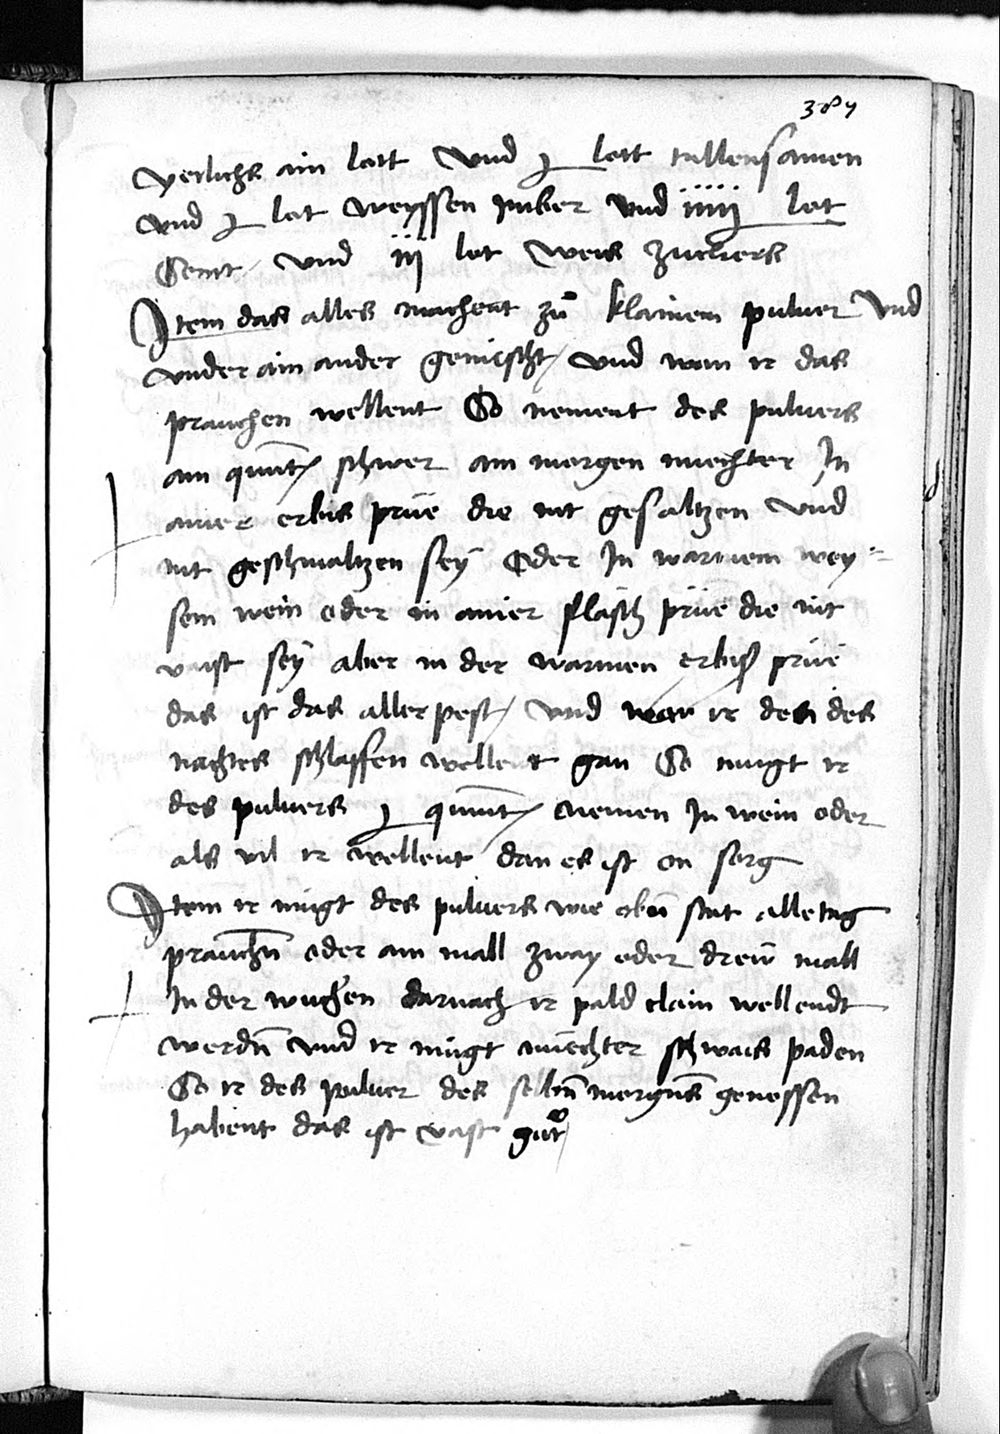 387
Yetlichs ain lott Vnd j lott tillensamen
vnd j lot weyssen imber vnd iiiij lot
Senit / vnd iij lot weis zuckers
Item das alles machent zů klainem puluer Vnd
vnder ain ander gemischt / vnd wan ir das
prauchen wellent So nement des puluers
ain quint schwer am morgen niechter In
ainer erbis prüe die nit gesaltzen Vnd
nit geschmaltzen sey Oder In warmem wey=
sem wein oder in ainer flaisch prüe die nit
vaist sey aber in der warmen erbis prüe
das ist das aller pest / vnd war ir den des
nachtes schlaffen wellent gan So mugt ir
des puluers j quint nemen In wein oder
als vil ir wellent dan es ist on sorg
Item ir mügt des puluers wie oben stat alle tag
prauchn oder ain mall zway oder drew mall
In der wuchen darnach ir pald clain wellendt
werdn vnd ir mügt niechter schwais paden
So ir des puluer des selbn morgens genossen
habent das ist vast gůt